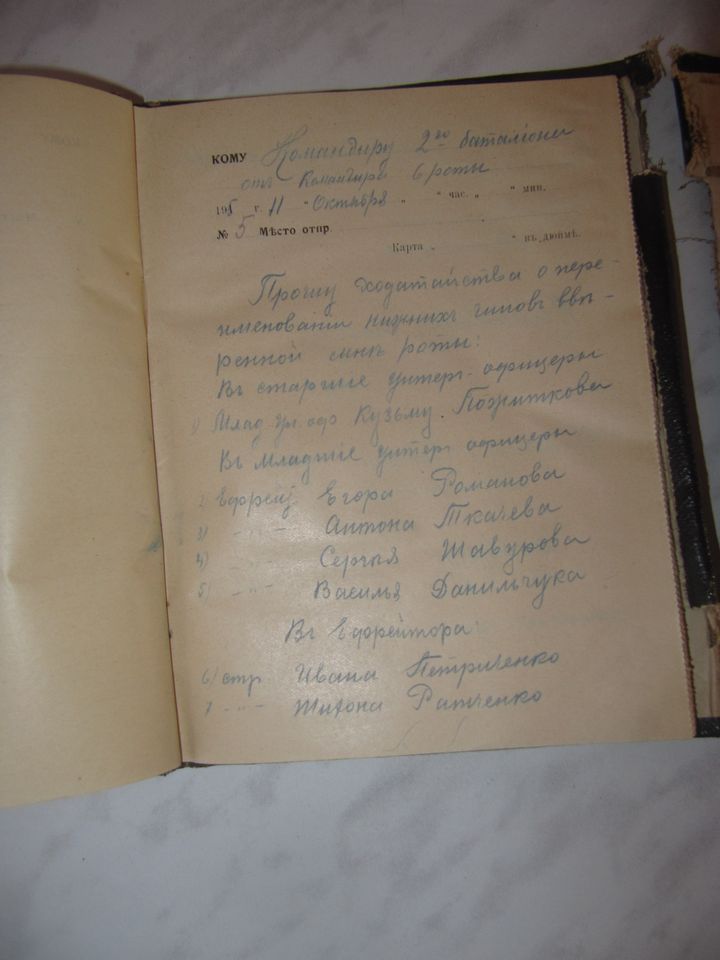 КОМУ Командиру 2го баталiона
отъ Командира 6 роты
1915 г. 11 "Октября "  " час. "  " мин.
№ 5 Мѣсто отпр.
Карта "  " въ дюймѣ.
Прошу ходатайства о пере-
именованiи нижнихъ чиновъ ввѣ-
ренной мнѣ роты:
Въ старшiе унтеръ-офицеры
1) Млад ун оф Кузьму Пожиткова
Въ младшiе унтеръ офицеры
2 Ефрей Егора Романова
3) -"- Антона Ткачева
4) Сергѣя Шавурова
5) -"- Василья Данильчука
Въ Ефрейтора:
6) стр Ивана Петриченко
7 -"- Тихона Ратченко